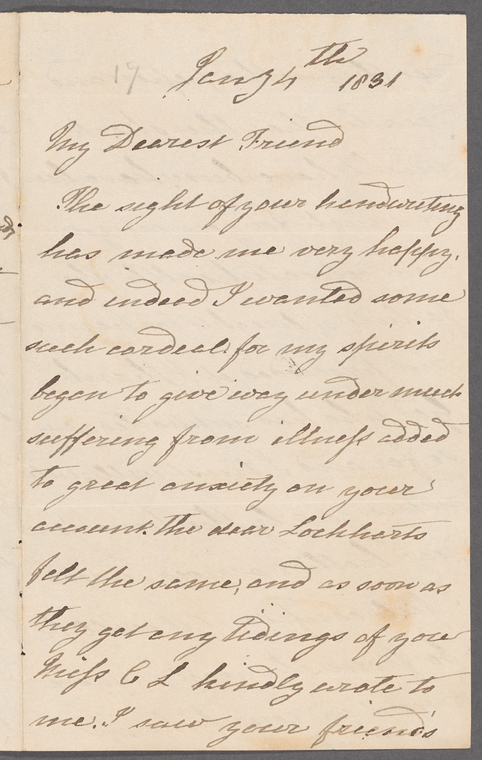 Jany 4th 1831
My Dearest Friend
The sight of your handwriting
has made me very happy.
and indeed I wanted some
such cordeal for my spirits
began to give way under much
suffering from illness added
to great anxiety on your
account. the dear Lockharts
felt the same, and as soon as
they got any tidings of you
Miss C L kindly wrote to
me. I saw your friend's